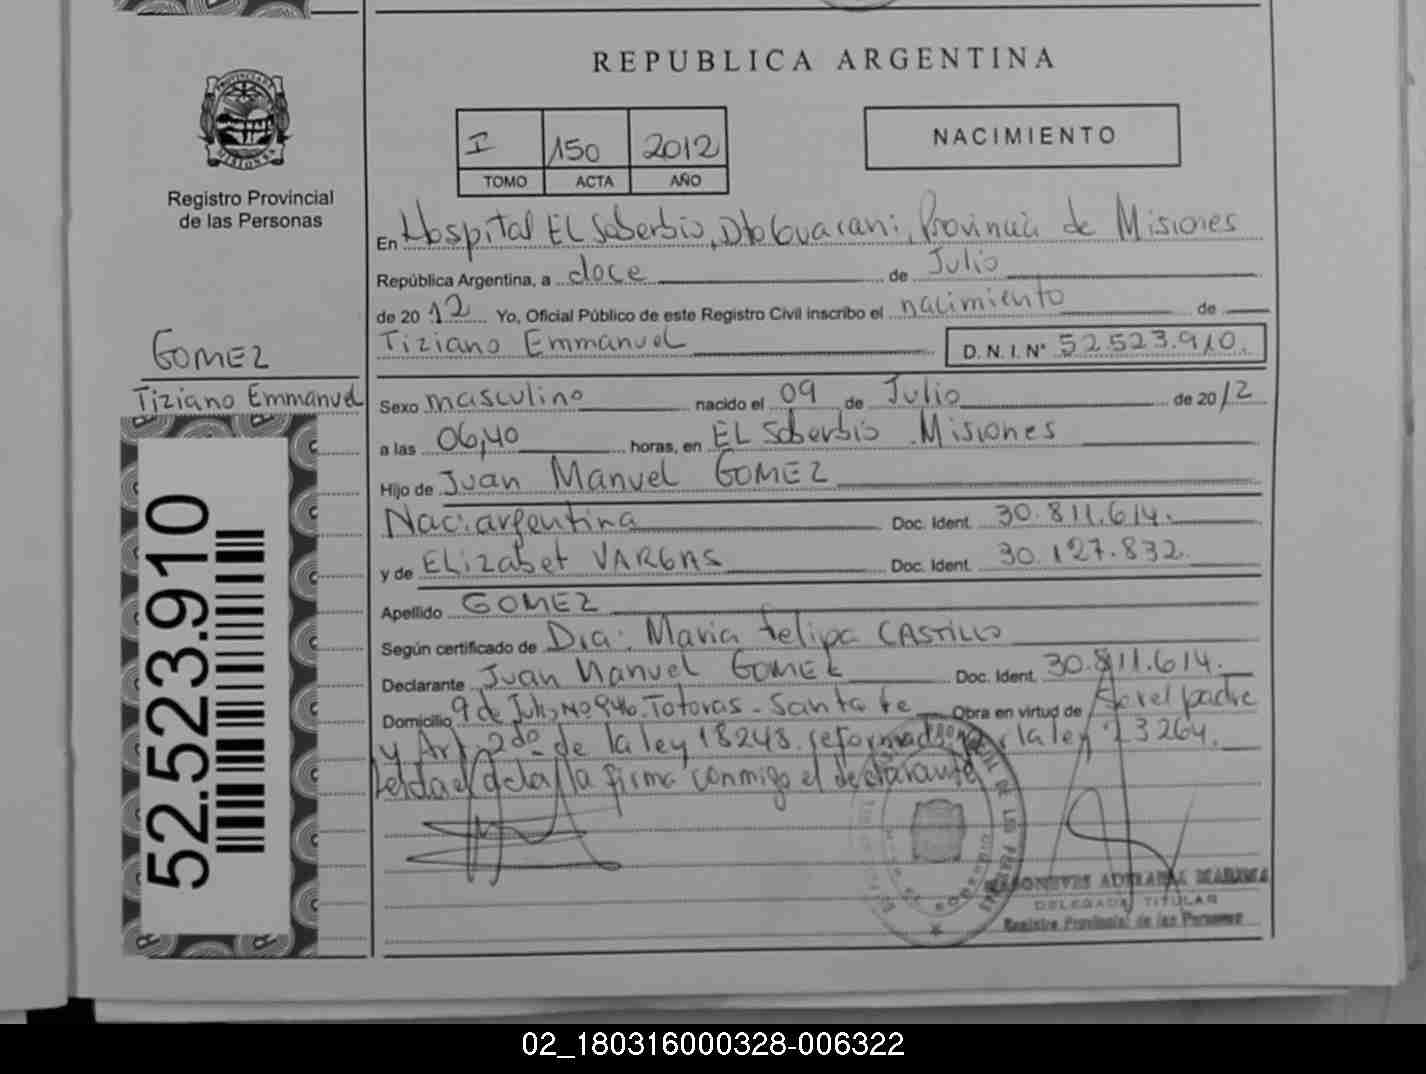 REPUBLICA ARGENTINA
PROVINCIA DE
MISIONES
Registro Provincial
de las Personas
I 150 2012
TOMO ACTA AÑO
NACIMIENTO
En Hospital EL Soberbio, Dto Guarani, Provincia de Misiones
República Argentina, a doce de Julio
de 2012 Yo, Oficial Público de este Registro Civil inscribo el nacimiento de
Tiziano Emmanuel D. N. I. Nº 52.523.910.
GOMEZ
Tiziano Emmanuel
Sexo masculino nacido el 09 de Julio de 2012
a las 06,40 horas, en EL Soberbio Misiones
Hijo de Juan Manuel GOMEZ
Nac. argentina Doc. Ident. 30.811.614.
y de Elizabet VARGAS Doc. Ident. 30.127.832.
Apellido GOMEZ
Según certificado de Dra. Maria Felipa CASTILLO
Declarante Juan Manuel GOMEZ Doc. Ident. 30.811.614.
Domicilio 9 de Julio Nº 946. Totoras - Santa Fe Obra en virtud de ser el padre
y Art. 2do de la ley 18248. reformado por la ley 23264.
Leída el acta, la firma conmigo el declarante
52.523.910
DELEGADA TITULAR
Registro Provincial de las Personas
02_180316000328-006322